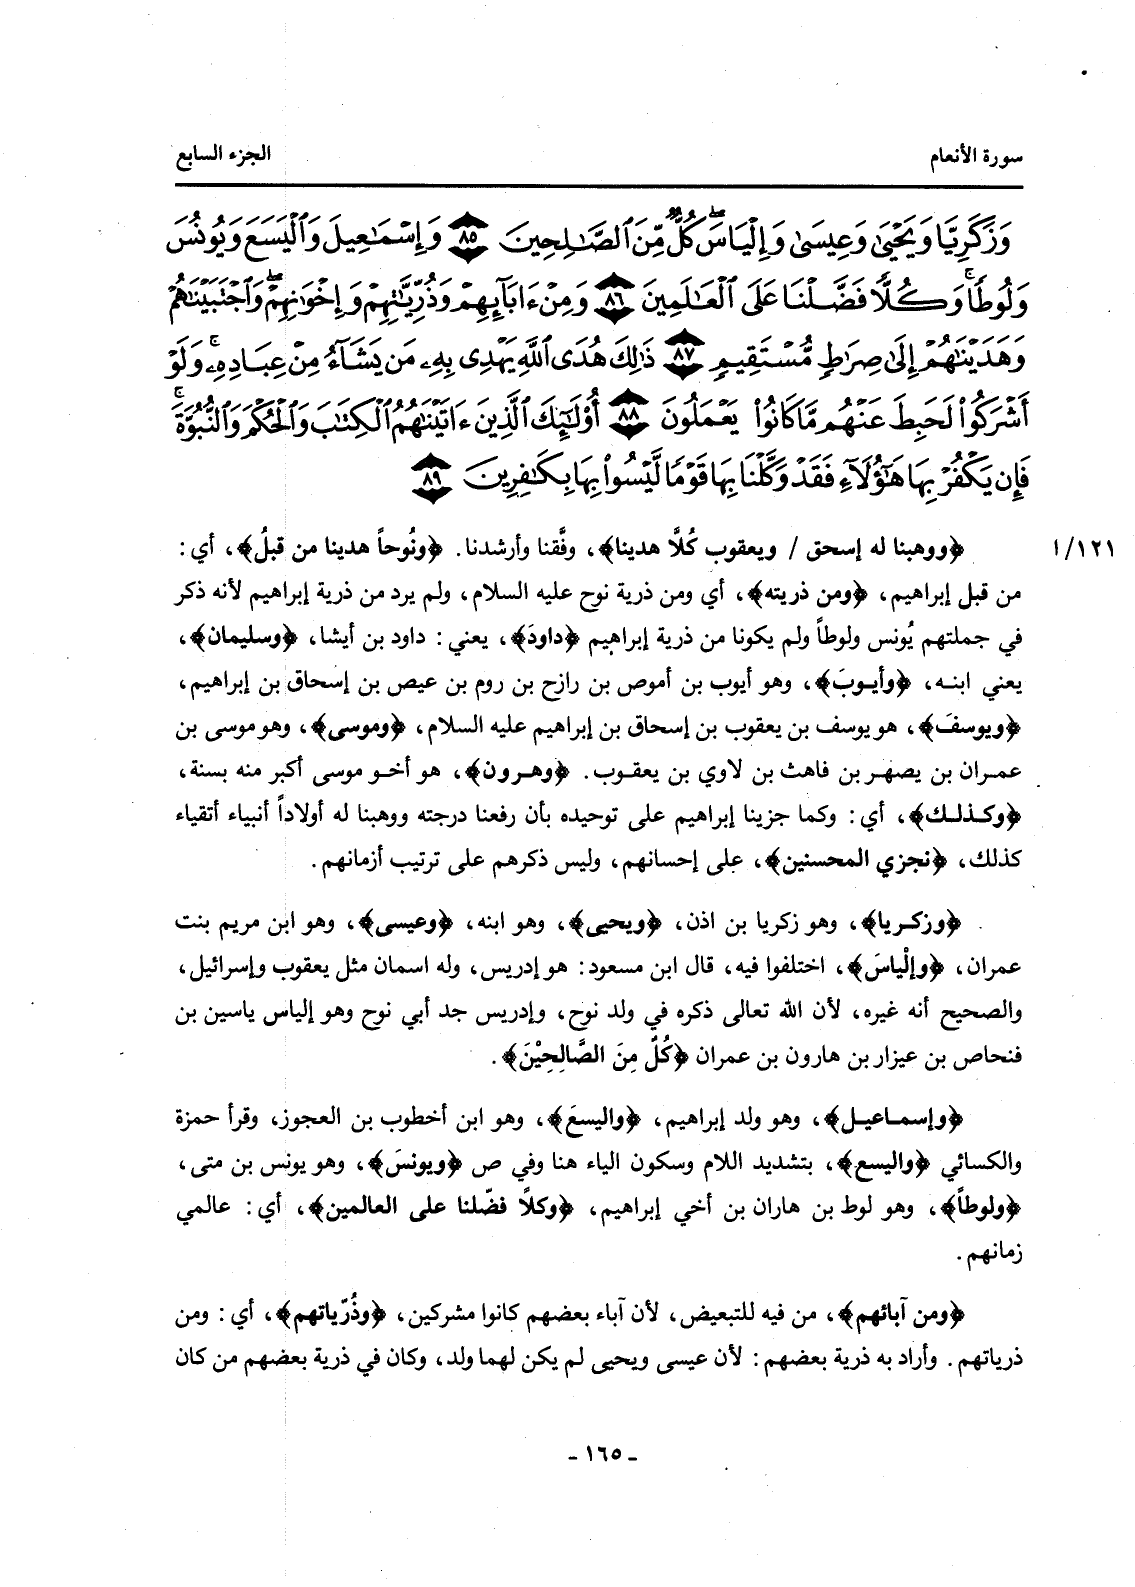 سورة الأنعام الجزء السابع
وَزَكَرِيَّا وَيَحْيَىٰ وَعِيسَىٰ وَإِلْيَاسَ ۖ كُلٌّ مِّنَ ٱلصَّٰلِحِينَ ٨٥ وَإِسْمَٰعِيلَ وَٱلْيَسَعَ وَيُونُسَ
وَلُوطًا ۚ وَكُلًّا فَضَّلْنَا عَلَى ٱلْعَٰلَمِينَ ٨٦ وَمِنْ ءَابَآئِهِمْ وَذُرِّيَّٰتِهِمْ وَإِخْوَٰنِهِمْ ۖ وَٱجْتَبَيْنَٰهُمْ
وَهَدَيْنَٰهُمْ إِلَىٰ صِرَٰطٍ مُّسْتَقِيمٍ ٨٧ ذَٰلِكَ هُدَى ٱللَّهِ يَهْدِى بِهِۦ مَن يَشَآءُ مِنْ عِبَادِهِۦ ۚ وَلَوْ
أَشْرَكُوا۟ لَحَبِطَ عَنْهُم مَّا كَانُوا۟ يَعْمَلُونَ ٨٨ أُو۟لَٰٓئِكَ ٱلَّذِينَ ءَاتَيْنَٰهُمُ ٱلْكِتَٰبَ وَٱلْحُكْمَ وَٱلنُّبُوَّةَ ۚ
فَإِن يَكْفُرْ بِهَا هَٰٓؤُلَآءِ فَقَدْ وَكَّلْنَا بِهَا قَوْمًا لَّيْسُوا۟ بِهَا بِكَٰفِرِينَ ٨٩
١٢١/أ ﴿ووهبنا له إسحق / ويعقوب كُلَّا هدينا﴾، وفَّقنا وأرشدنا. ﴿ونُوحاً هدينا من قبلُ﴾، أي:
من قبل إبراهيم، ﴿ومن ذريته﴾، أي ومن ذرية نوح عليه السلام، ولم يرد من ذرية إبراهيم لأنه ذكر
في جملتهم يُونس ولوطاً ولم يكونا من ذرية إبراهيم ﴿داودَ﴾، يعني: داود بن أيشا، ﴿وسليمان﴾،
يعني ابنه، ﴿وأيوبَ﴾، وهو أيوب بن أموص بن رازح بن روم بن عيص بن إسحاق بن إبراهيم،
﴿ويوسفَ﴾، هو يوسف بن يعقوب بن إسحاق بن إبراهيم عليه السلام، ﴿وموسى﴾، وهو موسى بن
عمران بن يصهر بن فاهث بن لاوي بن يعقوب. ﴿وهرون﴾، هو أخو موسى أكبر منه بسنة،
﴿وكذلك﴾، أي: وكما جزينا إبراهيم على توحيده بأن رفعنا درجته ووهبنا له أولاداً أنبياء أتقياء
كذلك، ﴿نجزي المحسنين﴾، على إحسانهم، وليس ذكرهم على ترتيب أزمانهم.
﴿وزكريا﴾، وهو زكريا بن اذن، ﴿ويحيى﴾، وهو ابنه، ﴿وعيسى﴾، وهو ابن مريم بنت
عمران، ﴿وإلْياسَ﴾، اختلفوا فيه، قال ابن مسعود: هو إدريس، وله اسمان مثل يعقوب وإسرائيل،
والصحيح أنه غيره، لأن الله تعالى ذكره في ولد نوح، وإدريس جد أبي نوح وهو إلياس ياسين بن
فنحاص بن عيزار بن هارون بن عمران ﴿كُلٌّ مِنَ الصَّالِحِيْنَ﴾.
﴿وإسماعيل﴾، وهو ولد إبراهيم، ﴿واليسعَ﴾، وهو ابن أخطوب بن العجوز، وقرأ حمزة
والكسائي ﴿واليسع﴾، بتشديد اللام وسكون الياء هنا وفي ص ﴿ويونسَ﴾، وهو يونس بن متى،
﴿ولوطاً﴾، وهو لوط بن هاران بن أخي إبراهيم، ﴿وكلاً فضّلنا على العالمين﴾، أي: عالمي
زمانهم.
﴿ومن آبائهم﴾، من فيه للتبعيض، لأن آباء بعضهم كانوا مشركين، ﴿وذُرّياتهم﴾، أي: ومن
ذرياتهم. وأراد به ذرية بعضهم: لأن عيسى ويحيى لم يكن لهما ولد، وكان في ذرية بعضهم من كان
- ١٦٥ -